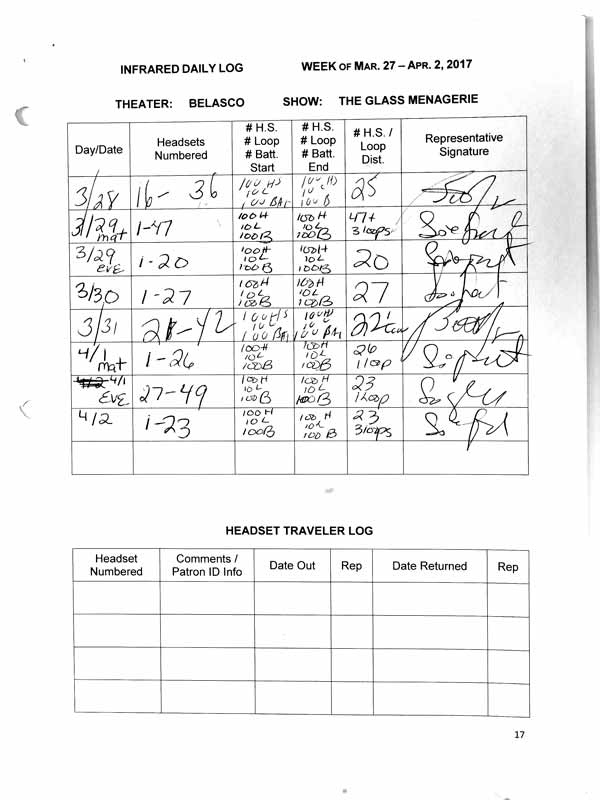 INFRARED DAILY LOG WEEK OF MAR. 27 – APR. 2, 2017
THEATER: BELASCO SHOW: THE GLASS MENAGERIE
Day/Date Headsets Numbered # H.S. # Loop # Batt. Start # H.S. # Loop # Batt. End # H.S. / Loop Dist. Representative Signature
3/28 16 - 36 100 HS 10L 100 BAt 100 HS 10L 100 B 25
3/29 mat 1-47 100H 10L 100B 100H 10L 100B 47+ 3 loops
3/29 EVE 1-20 100H 10L 100B 100H 10L 100B 20
3/30 1-27 100H 10L 100B 100H 10L 100B 27
3/31 21-42 100HS 10L 100 BAt 100HS 10L 100 BAt 22
4/1 mat 1-26 100H 10L 100B 100H 10L 100B 26 1 loop
4/1 EVE 27-49 100H 10L 100B 100H 10L 100B 23 1 loop
4/2 1-23 100H 10L 100B 100 H 10L 100 B 23 3 loops
HEADSET TRAVELER LOG
Headset Numbered Comments / Patron ID Info Date Out Rep Date Returned Rep
17